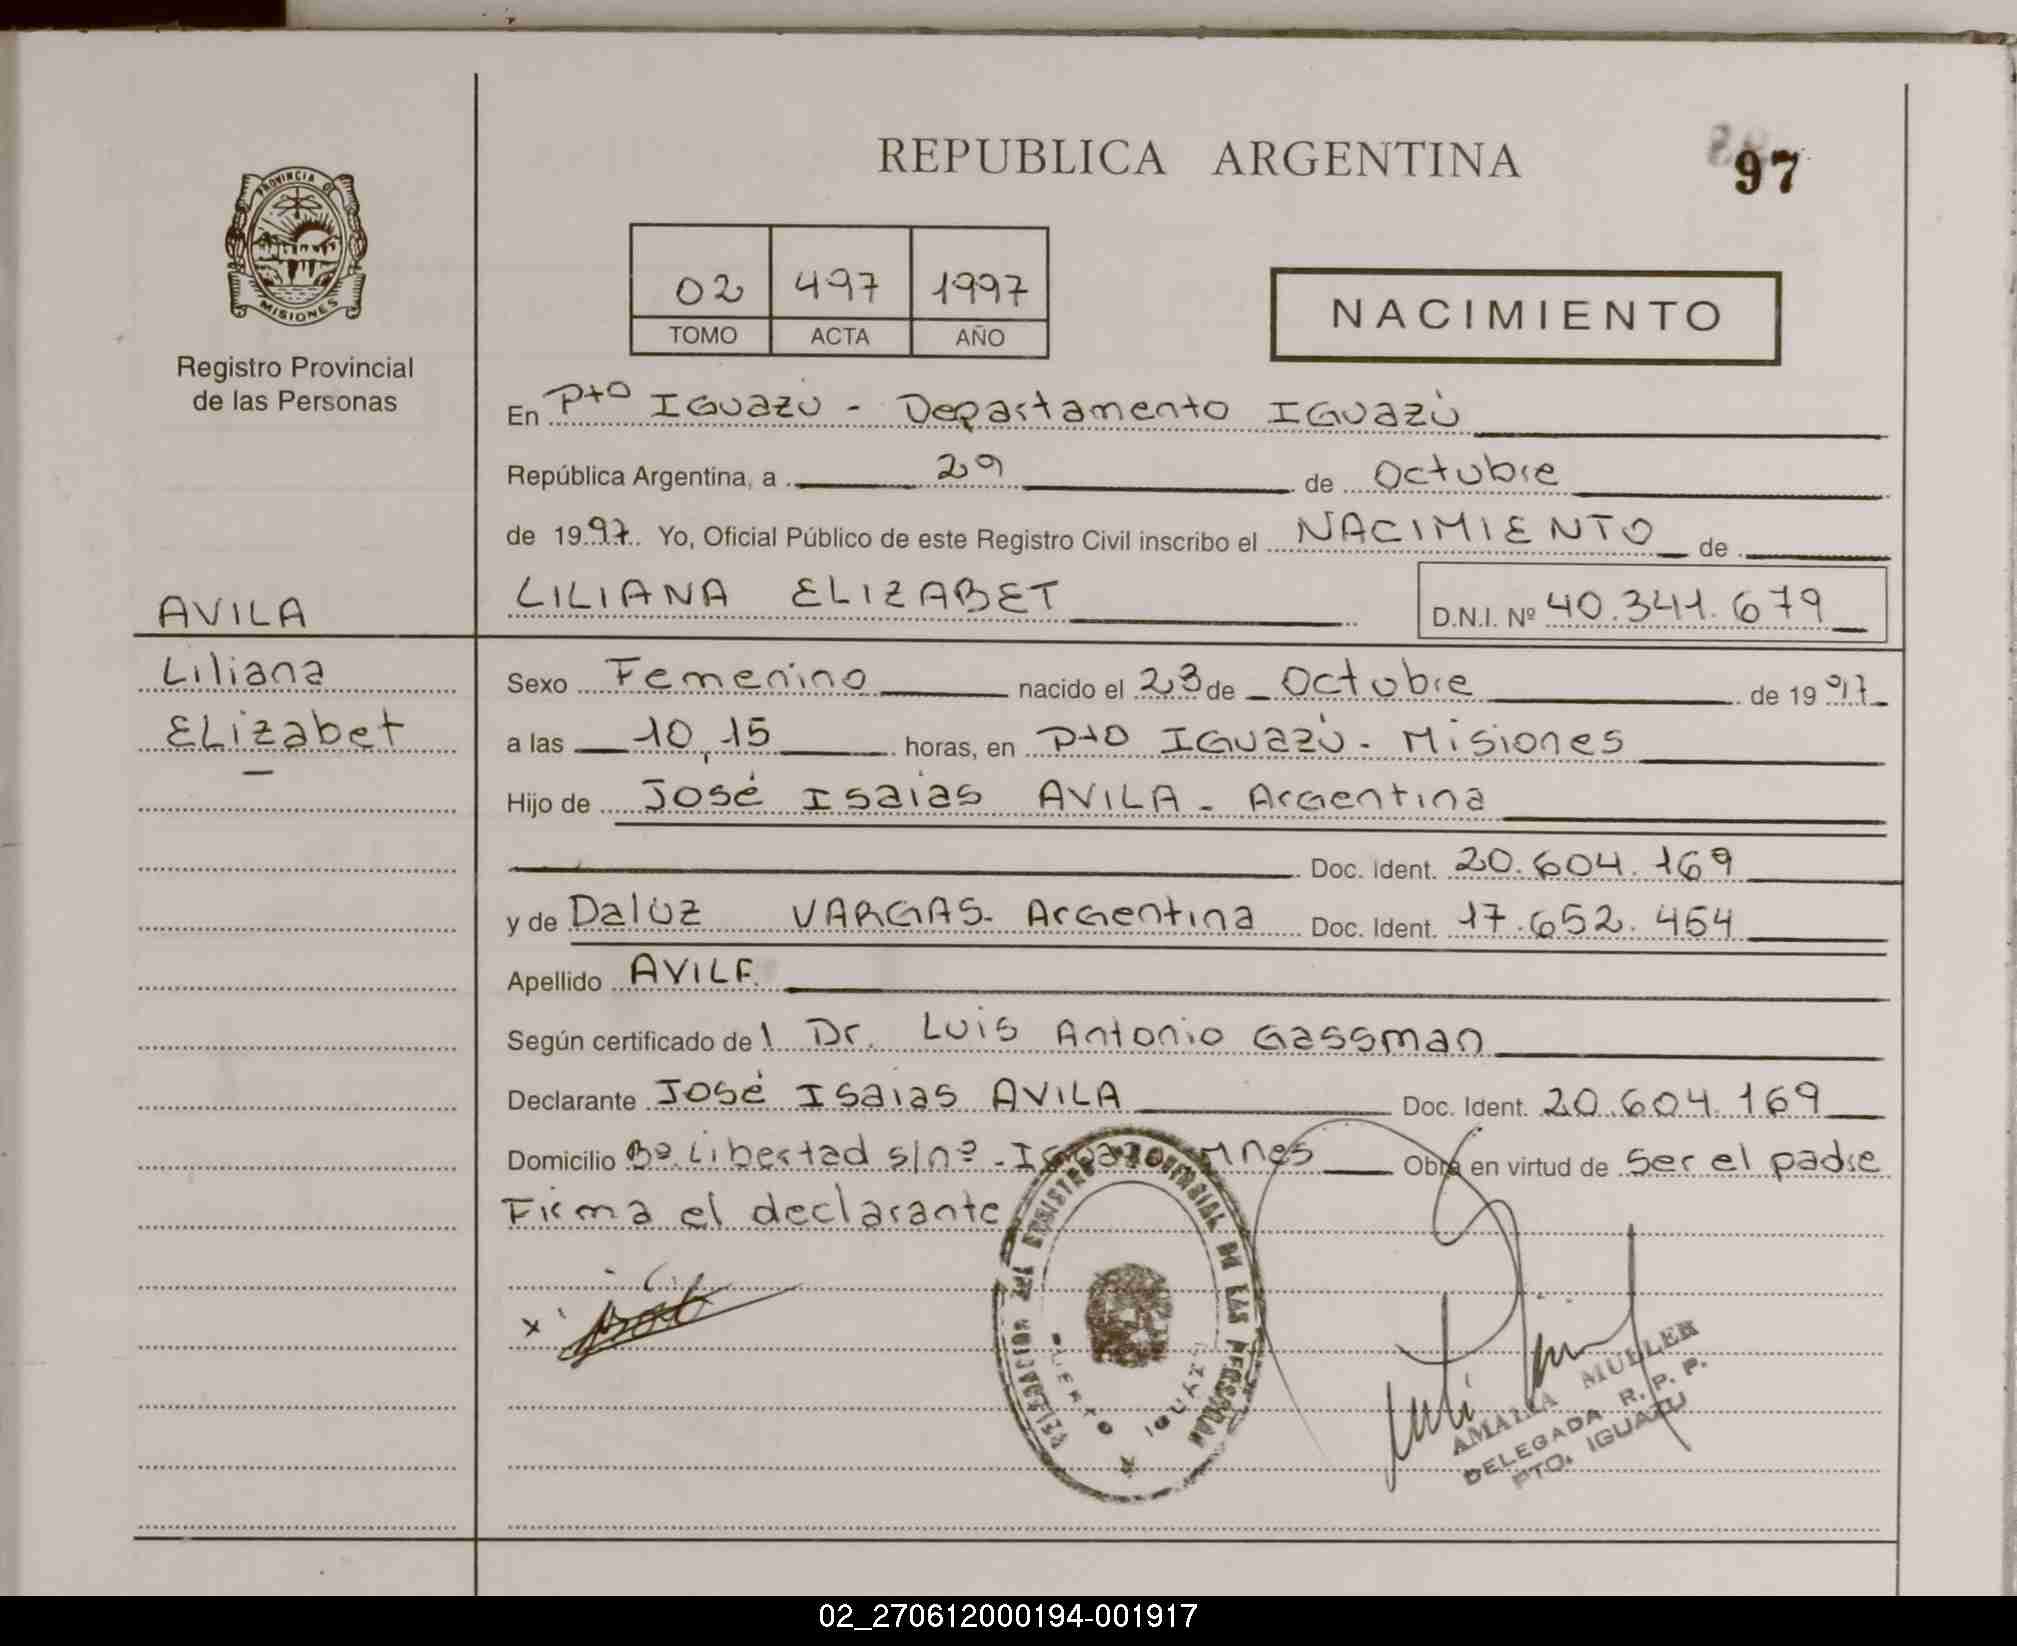 REPUBLICA ARGENTINA
97
PROVINCIA DE
MISIONES
Registro Provincial
de las Personas
02 497 1997
TOMO ACTA AÑO
NACIMIENTO
En Pto IGUAZÚ - Departamento IGUAZÚ
República Argentina, a 29 de Octubre
de 1997. Yo, Oficial Público de este Registro Civil inscribo el NACIMIENTO de
LILIANA ELIZABET D.N.I. Nº 40.341.679
AVILA
Liliana
ELizabet
Sexo Femenino nacido el 23 de Octubre de 1997
a las 10,15 horas, en Pto IGUAZÚ - Misiones
Hijo de José Isaias AVILA - Argentina
Doc. Ident. 20.604.169
y de Daluz VARGAS - Argentina Doc. Ident. 17.652.454
Apellido AVILA
Según certificado del Dr. Luis Antonio Gassman
Declarante José Isaias AVILA Doc. Ident. 20.604.169
Domicilio Bº Libertad s/nº - Iguazú Mnes Obra en virtud de ser el padre
Firma el declarante
DELEGACION DEL REGISTRO PROVINCIAL DE LAS PERSONAS
PUERTO IGUAZU
x
AMALIA MULLER
DELEGADA R. P. P.
PTO. IGUAZU
02_270612000194-001917